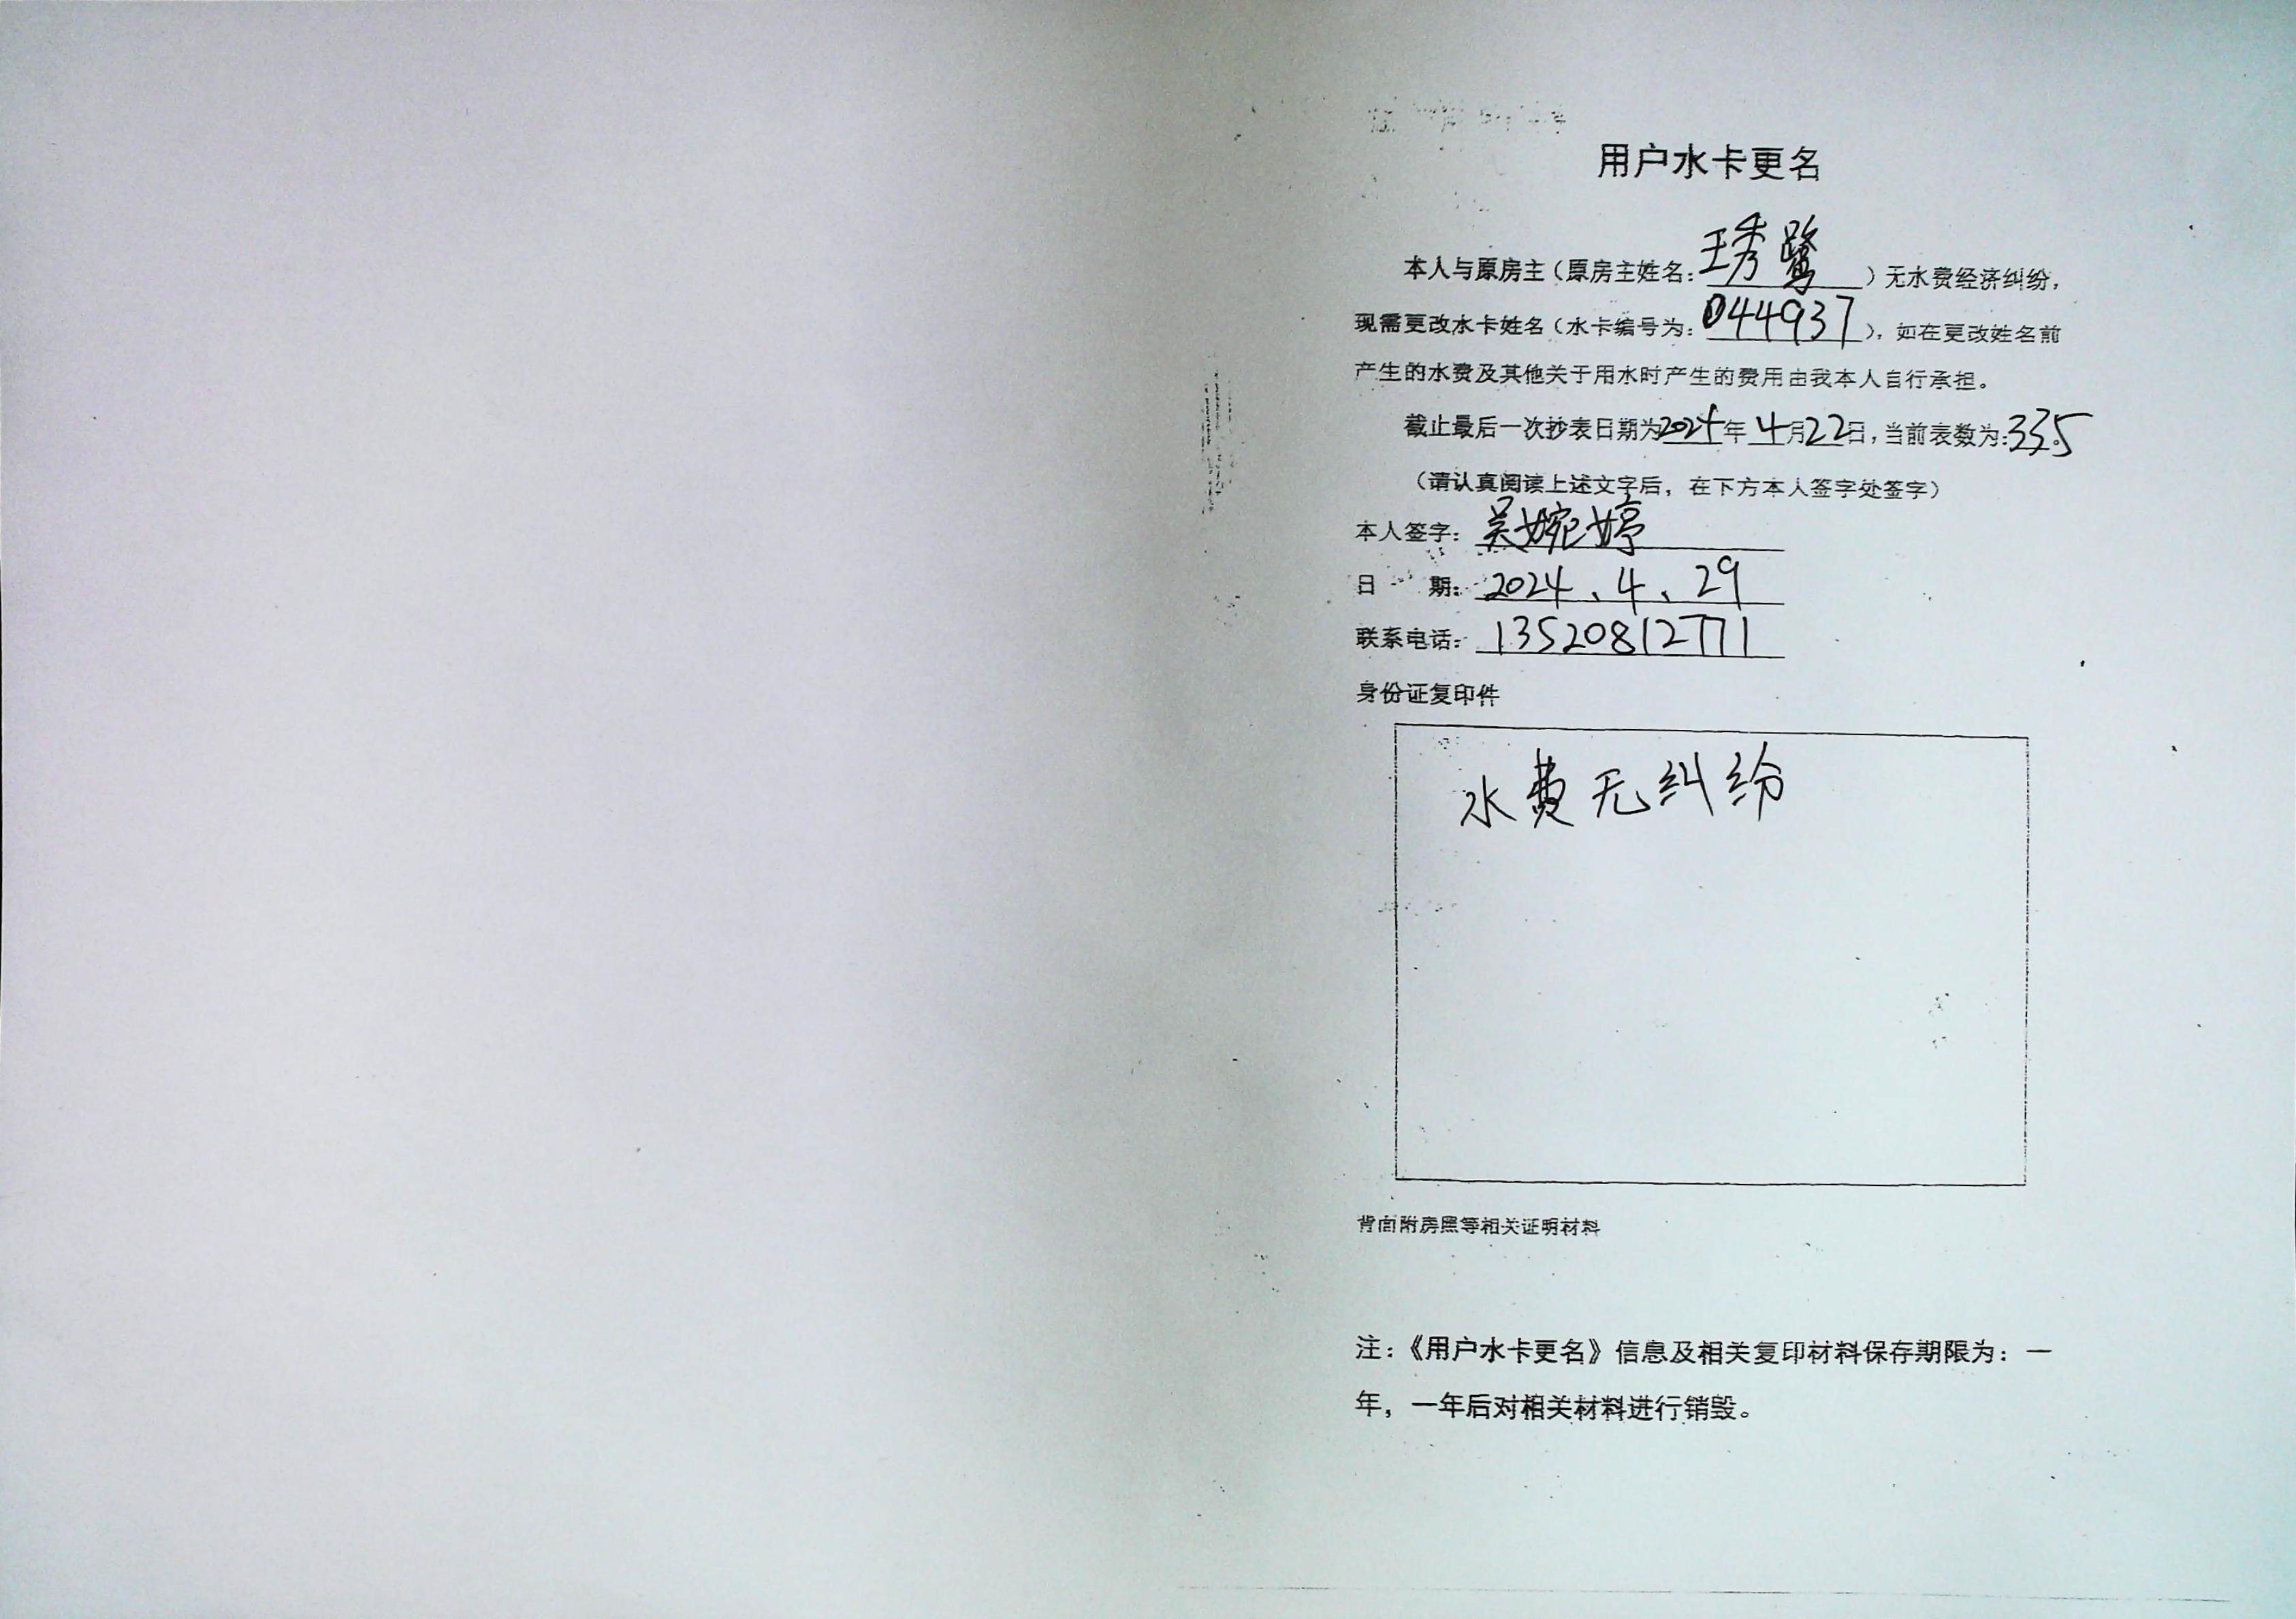 用户水卡更名
本人与原房主（原房主姓名：王秀鹭）无水费经济纠纷，
现需更改水卡姓名（水卡编号为：044937），如在更改姓名前
产生的水费及其他关于用水时产生的费用由我本人自行承担。
截止最后一次抄表日期为2024年4月22日，当前表数为：335。
（请认真阅读上述文字后，在下方本人签字处签字）
本人签字：吴婉婷
日 期：2024、4、29
联系电话：13520812771
身份证复印件
水费无纠纷
背面附房照等相关证明材料
注：《用户水卡更名》信息及相关复印材料保存期限为：一
年，一年后对相关材料进行销毁。